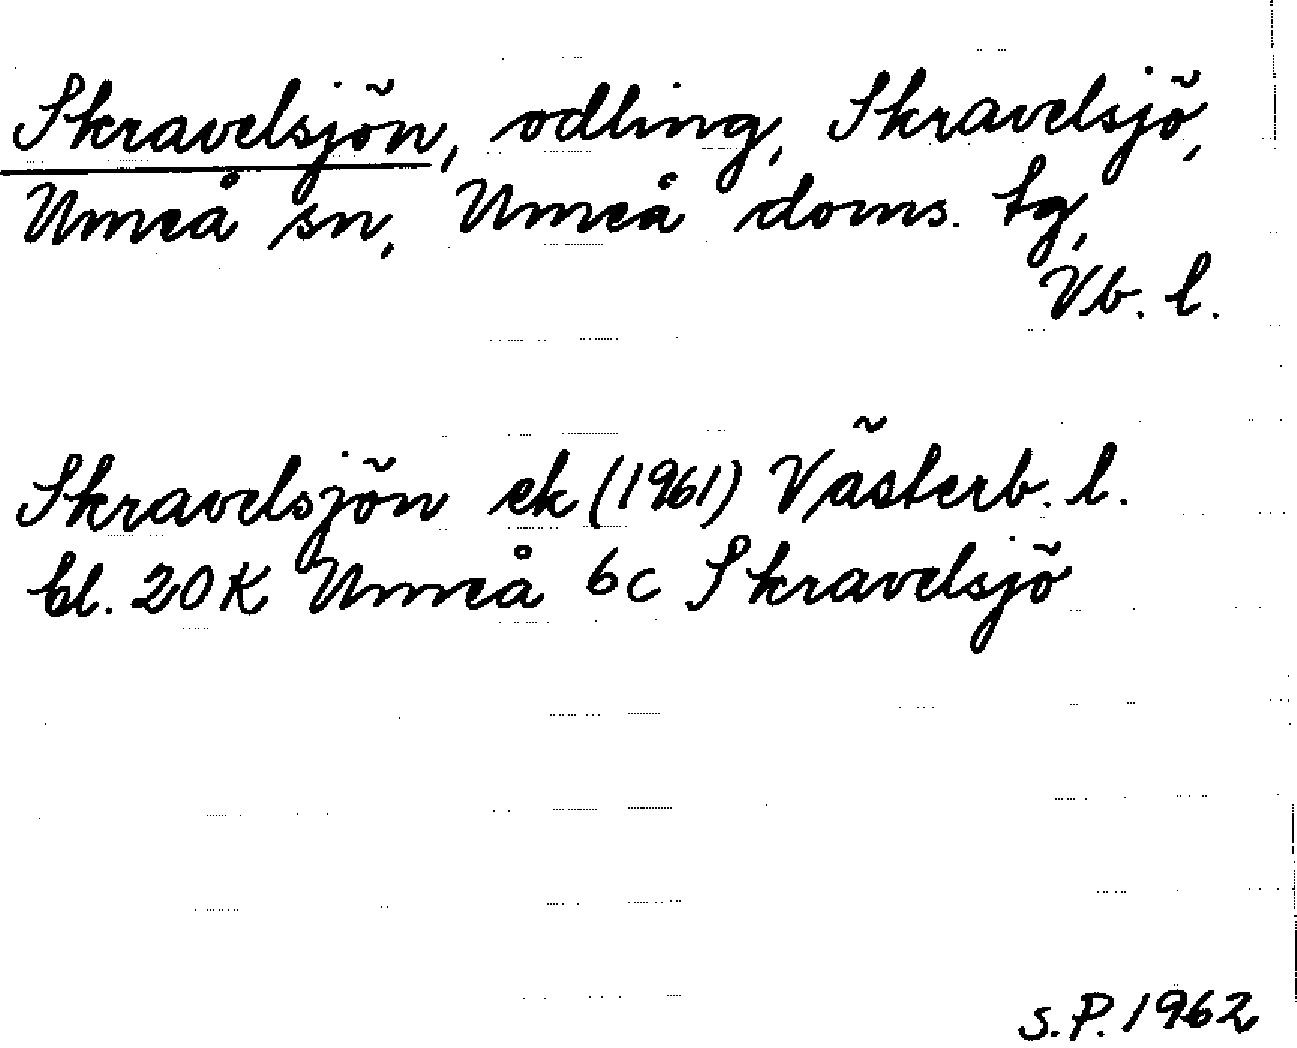 Skravelsjön, odling, Skravelsjö,
Umeå sn, Umeå doms. tg,
Vb. l.
Skravelsjön ek (1961) Västerb. l.
bl. 20K Umeå 6c Skravelsjö
S.P. 1962